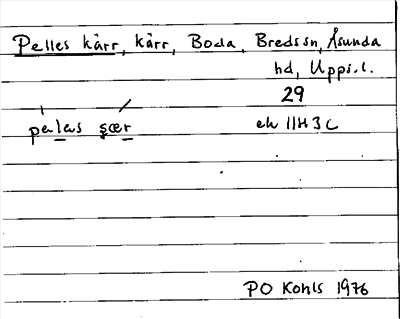 Pelles kärr, kärr, Boda, Bredssn, Åsunda
hd, Upps.l.
29
pelles ɕær
ek 11H3C
PO Kohls 1976